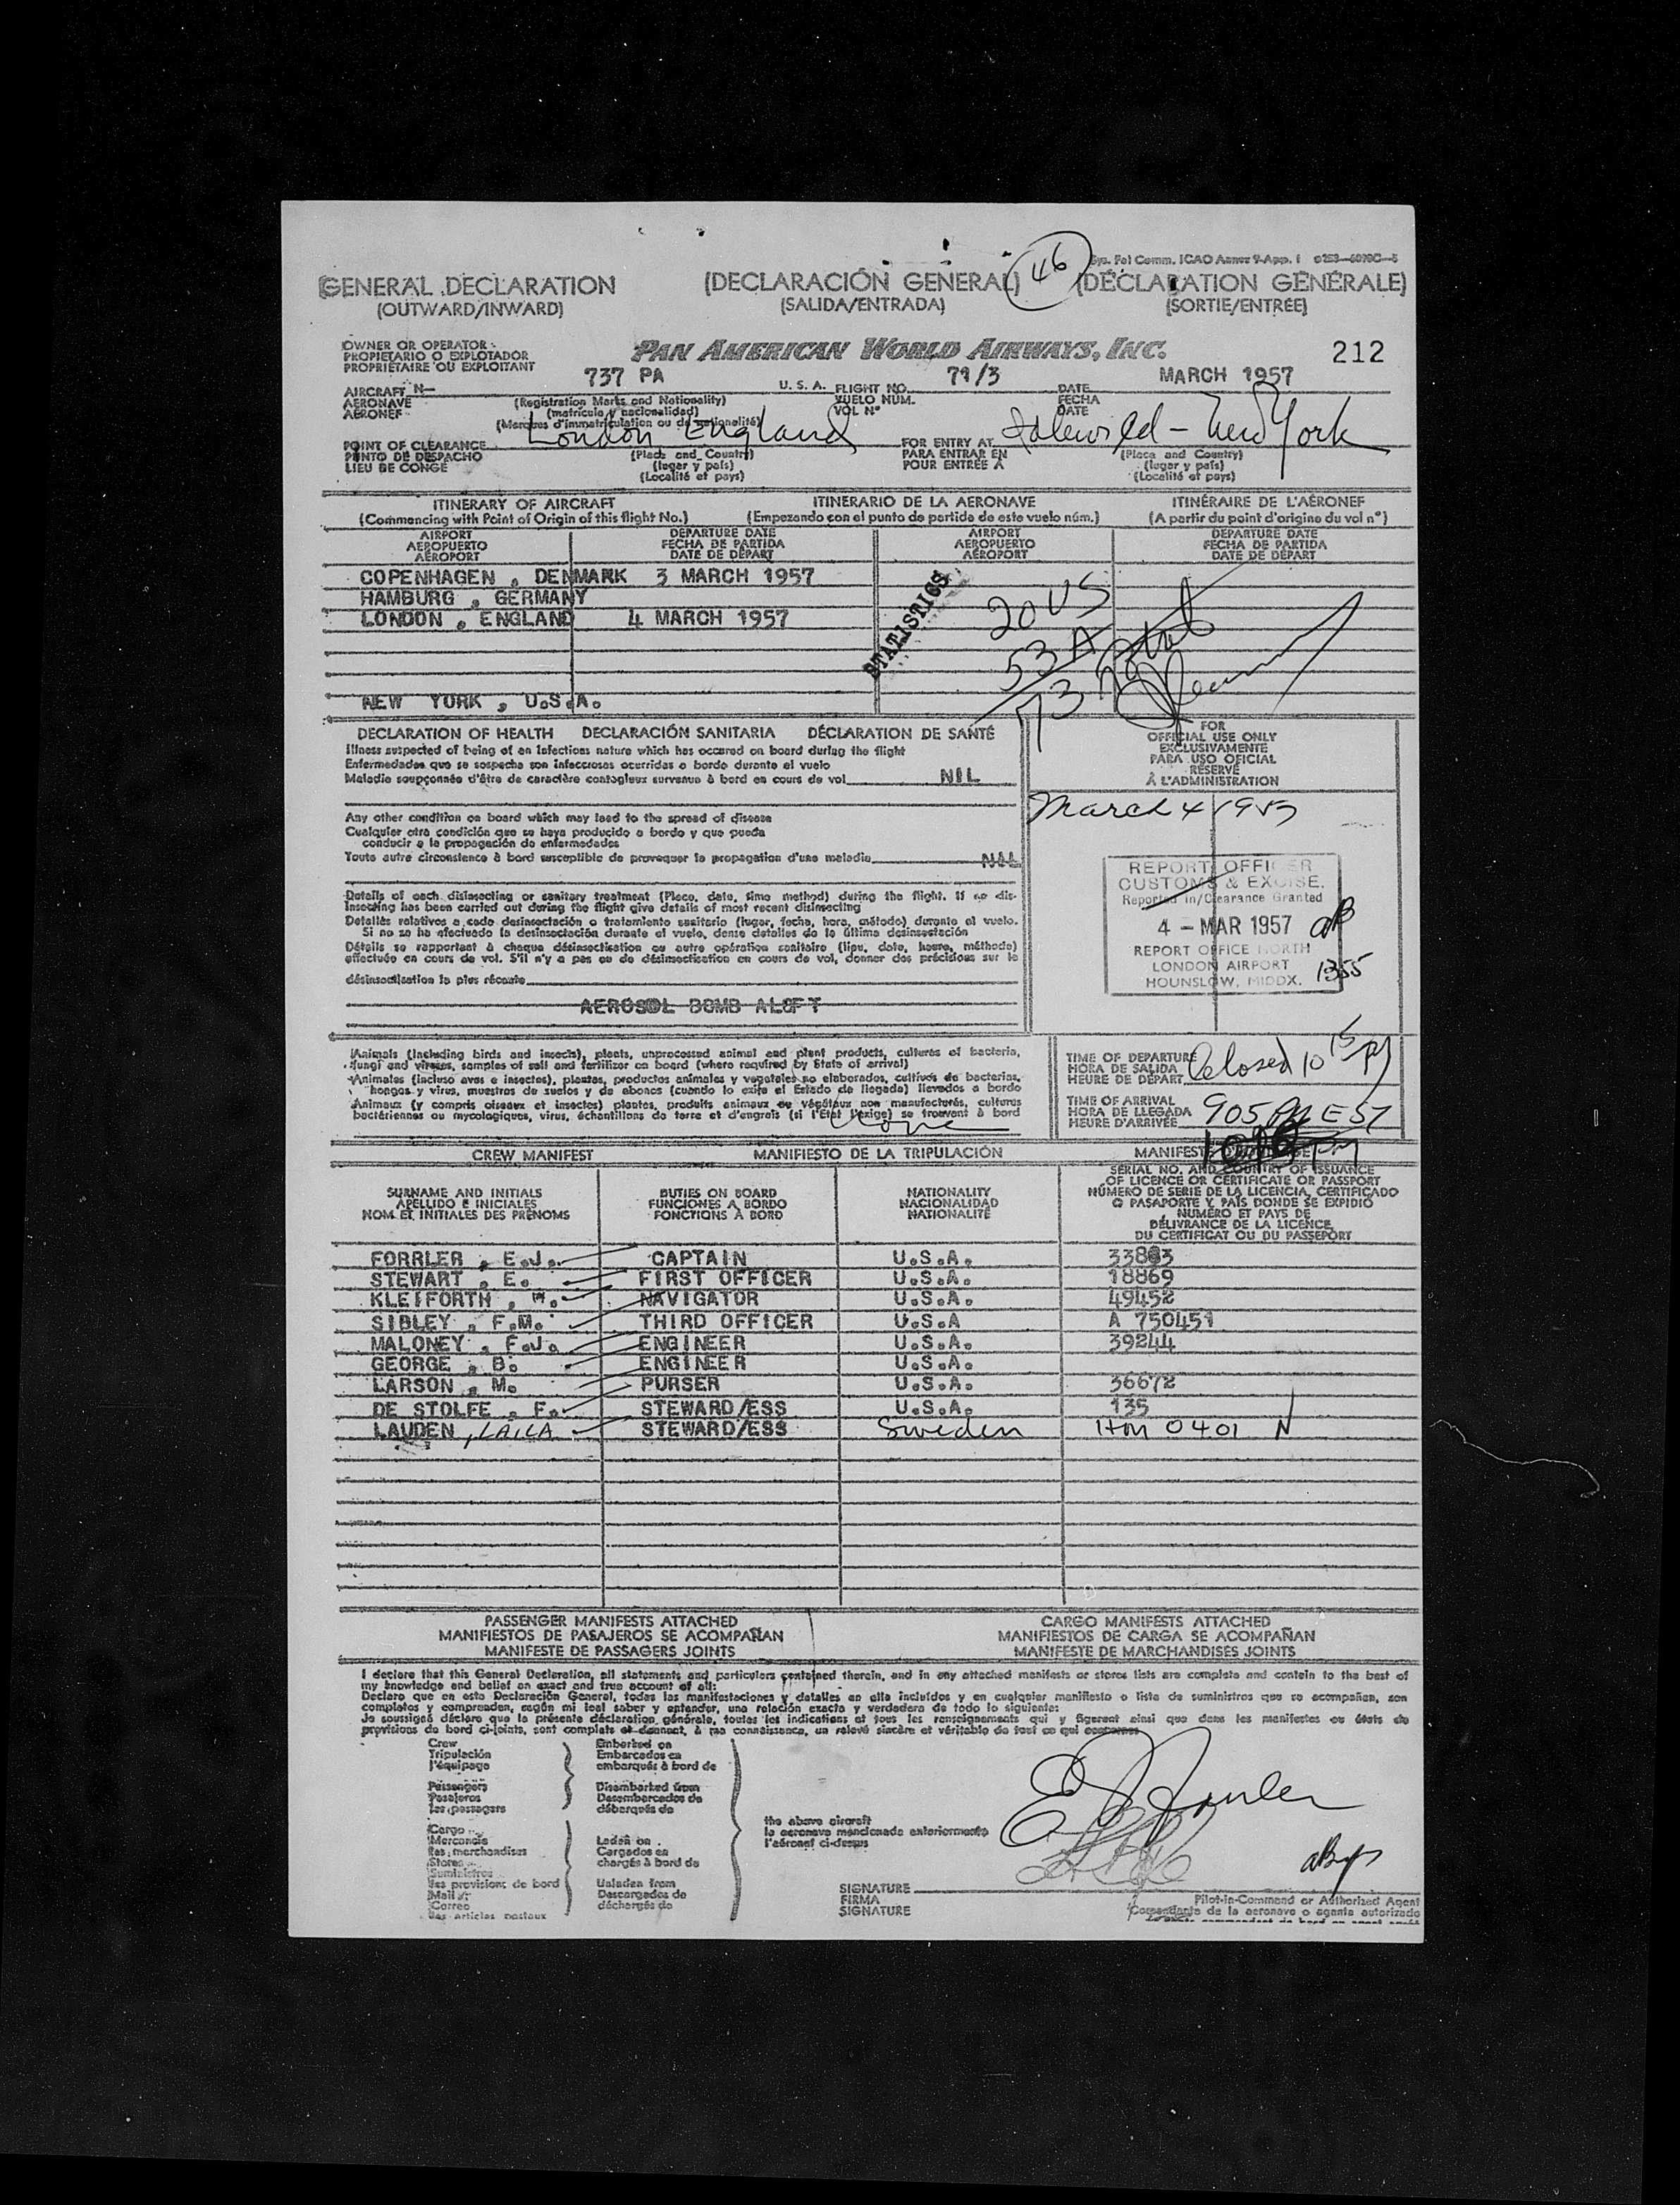 46
Sys. Fol Comm. ICAO Annex 9-App. I
GENERAL DECLARATION (DECLARACIÓN GENERAL) (DÉCLARATION GÉNÉRALE)
(OUTWARD/INWARD) (SALIDA/ENTRADA) (SORTIE/ENTRÉE)
OWNER OR OPERATOR
PROPIETARIO O EXPLOTADOR
PROPRIÉTAIRE OU EXPLOITANT
PAN AMERICAN WORLD AIRWAYS, INC. 212
737 PA 71/3 MARCH 1957
AIRCRAFT N— U. S. A. FLIGHT NO. DATE
AERONAVE (Registration Marks and Nationality) VUELO NUM. FECHA
AÉRONEF (matrícula y nacionalidad) VOL Nº DATE
(Marques d'immatriculation ou de nationalité)
London England Idlewild - New York
POINT OF CLEARANCE (Place and Country) FOR ENTRY AT (Place and Country)
PUNTO DE DESPACHO (lugar y país) PARA ENTRAR EN (lugar y país)
LIEU DE CONGÉ (Localité et pays) POUR ENTRÉE À (Localité et pays)
ITINERARY OF AIRCRAFT ITINERARIO DE LA AERONAVE ITINÉRAIRE DE L'AÉRONEF
(Commencing with Point of Origin of this flight No.) (Empezando con el punto de partida de este vuelo núm.) (A partir du point d'origine du vol nº)
AIRPORT DEPARTURE DATE AIRPORT DEPARTURE DATE
AEROPUERTO FECHA DE PARTIDA AEROPUERTO FECHA DE PARTIDA
AÉROPORT DATE DE DÉPART AÉROPORT DATE DE DÉPART
COPENHAGEN , DENMARK 3 MARCH 1957
HAMBURG , GERMANY
LONDON , ENGLAND 4 MARCH 1957
STATISTICS
20 US
53 A
73
NEW YORK , U.S.A.
DECLARATION OF HEALTH DECLARACIÓN SANITARIA DÉCLARATION DE SANTÉ
Illness suspected of being of an infectious nature which has occured on board during the flight
Enfermedades que se sospecha son infecciosas ocurridas a bordo durante el vuelo
Maladie soupçonnée d'être de caractère contagieux survenue à bord en cours de vol NIL
FOR
OFFICIAL USE ONLY
EXCLUSIVAMENTE
PARA USO OFICIAL
RÉSERVÉ
À L'ADMINISTRATION
March 4 1957
Any other condition on board which may lead to the spread of disease
Cualquier otra condición que se haya producido a bordo y que pueda
conducir a la propagación de enfermedades
Toute autre circonstance à bord susceptible de provoquer la propagation d'une maladie NIL
REPORT OFFICER
CUSTOMS & EXCISE.
Reported in/Clearance Granted
4 - MAR 1957
REPORT OFFICE NORTH
LONDON AIRPORT
HOUNSLOW, MIDDX.
1355
Details of each disinsecting or sanitary treatment (Place, date, time method) during the flight. If no dis-
insecting has been carried out during the flight give details of most recent disinsecting
Detalles relativos a cada desinsectación o tratamiento sanitario (lugar, fecha, hora, método) durante el vuelo.
Si no se ha efectuado la desinsectación durante el vuelo, dense detalles de la última desinsectación
Détails se rapportant à chaque désinsectisation ou autre opération sanitaire (lieu, date, heure, méthode)
effectuée en cours de vol. S'il n'y a pas eu de désinsectisation en cours de vol, donner des précisions sur la
désinsectisation la plus récente
AEROSOL BOMB ALOFT
Animals (including birds and insects), plants, unprocessed animal and plant products, cultures of bacteria,
fungi and viruses, samples of soil and fertilizer on board (where required by State of arrival)
Animales (incluso aves e insectos), plantas, productos animales y vegetales no elaborados, cultivos de bacterias,
hongos y virus, muestras de suelos y de abonos (cuando lo exija el Estado de llegada) llevados a bordo
Animaux (y compris oiseaux et insectes) plantes, produits animaux ou végétaux non manufacturés, cultures
bactériennes ou mycologiques, virus, échantillons de terre et d'engrais (si l'État l'exige) se trouvant à bord
None
TIME OF DEPARTURE
HORA DE SALIDA
HEURE DE DÉPART
Closed 10 15 PM
TIME OF ARRIVAL
HORA DE LLEGADA
HEURE D'ARRIVÉE
905 PM EST
CREW MANIFEST MANIFIESTO DE LA TRIPULACIÓN MANIFESTE
SURNAME AND INITIALS
APELLIDO E INICIALES
NOM ET INITIALES DES PRÉNOMS
DUTIES ON BOARD
FUNCIONES A BORDO
FONCTIONS À BORD
NATIONALITY
NACIONALIDAD
NATIONALITÉ
SERIAL NO. AND COUNTRY OF ISSUANCE
OF LICENCE OR CERTIFICATE OR PASSPORT
NÚMERO DE SERIE DE LA LICENCIA, CERTIFICADO
O PASAPORTE Y PAÍS DONDE SE EXPIDIÓ
NUMÉRO ET PAYS DE
DÉLIVRANCE DE LA LICENCE,
DU CERTIFICAT OU DU PASSEPORT
FORRLER , E.J. CAPTAIN U.S.A. 33883
STEWART , E. FIRST OFFICER U.S.A. 18869
KLEIFORTH , NAVIGATOR U.S.A. 49452
SIBLEY , F.M. THIRD OFFICER U.S.A A 750451
MALONEY , F.J. ENGINEER U.S.A. 39244
GEORGE , B. ENGINEER U.S.A.
LARSON , M. PURSER U.S.A. 36672
DE STOLFE , F. STEWARD/ESS U.S.A. 135
LAUDEN , LAILA STEWARD/ESS Sweden HM 0401 N
PASSENGER MANIFESTS ATTACHED CARGO MANIFESTS ATTACHED
MANIFIESTOS DE PASAJEROS SE ACOMPAÑAN MANIFIESTOS DE CARGA SE ACOMPAÑAN
MANIFESTE DE PASSAGERS JOINTS MANIFESTE DE MARCHANDISES JOINTS
I declare that this General Declaration, all statements and particulars contained therein, and in any attached manifests or stores lists are complete and contain to the best of
my knowledge and belief an exact and true account of all:
Declaro que en esta Declaración General, todas las manifestaciones y detalles en ella incluídos y en cualquier manifiesto o lista de suministros que se acompañen, son
completos y comprenden, según mi leal saber y entender, una relación exacta y verdadera de todo lo siguiente:
Je soussigné déclare que la présente déclaration générale, toutes les indications et tous les renseignements qui y figurent ainsi que dans les manifestes ou états de
provisions de bord ci-joints, sont complets et donnent, à ma connaissance, un relevé sincère et véritable de tout ce qui concerne
Crew
Tripulación
l'équipage
Passengers
Pasajeros
les passagers
Embarked on
Embarcados en
embarqués à bord de
Disembarked from
Desembarcados de
débarqués de
Cargo
Mercancía
les marchandises
Stores
Suministros
les provisions de bord
Mail
Correo
les articles postaux
Laden on
Cargados en
chargés à bord de
Unladen from
Descargados de
déchargés de
the above aircraft
la aeronave mencionada anteriormente
l'aéronef ci-dessus
SIGNATURE
FIRMA
SIGNATURE
Pilot-in-Command or Authorized Agent
Comandante de la aeronave o agente autorizado